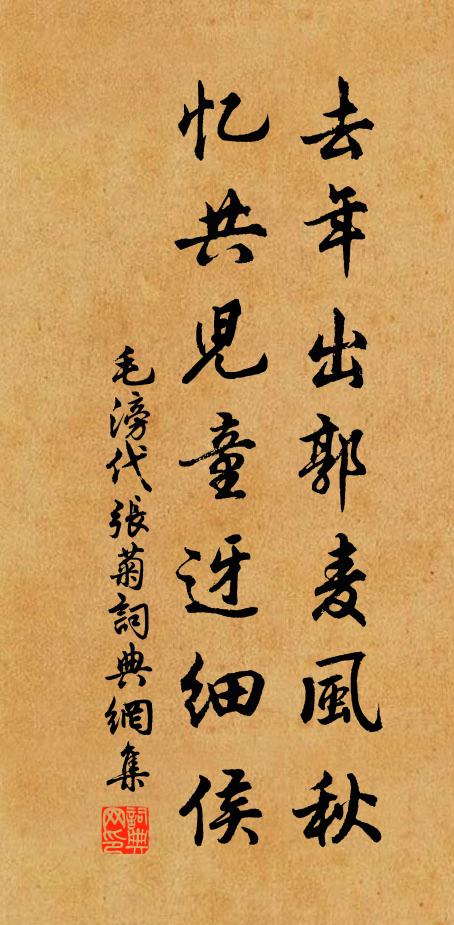 去年出郭麦風秋
忆共児童迓细侯
毛滂代張菊詞典網集
詞典
网印